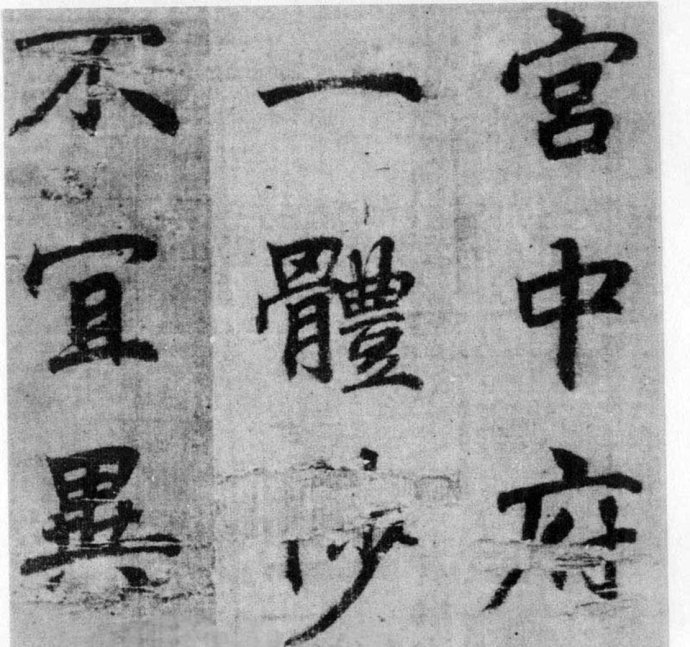 宮中府
一體
不宜異